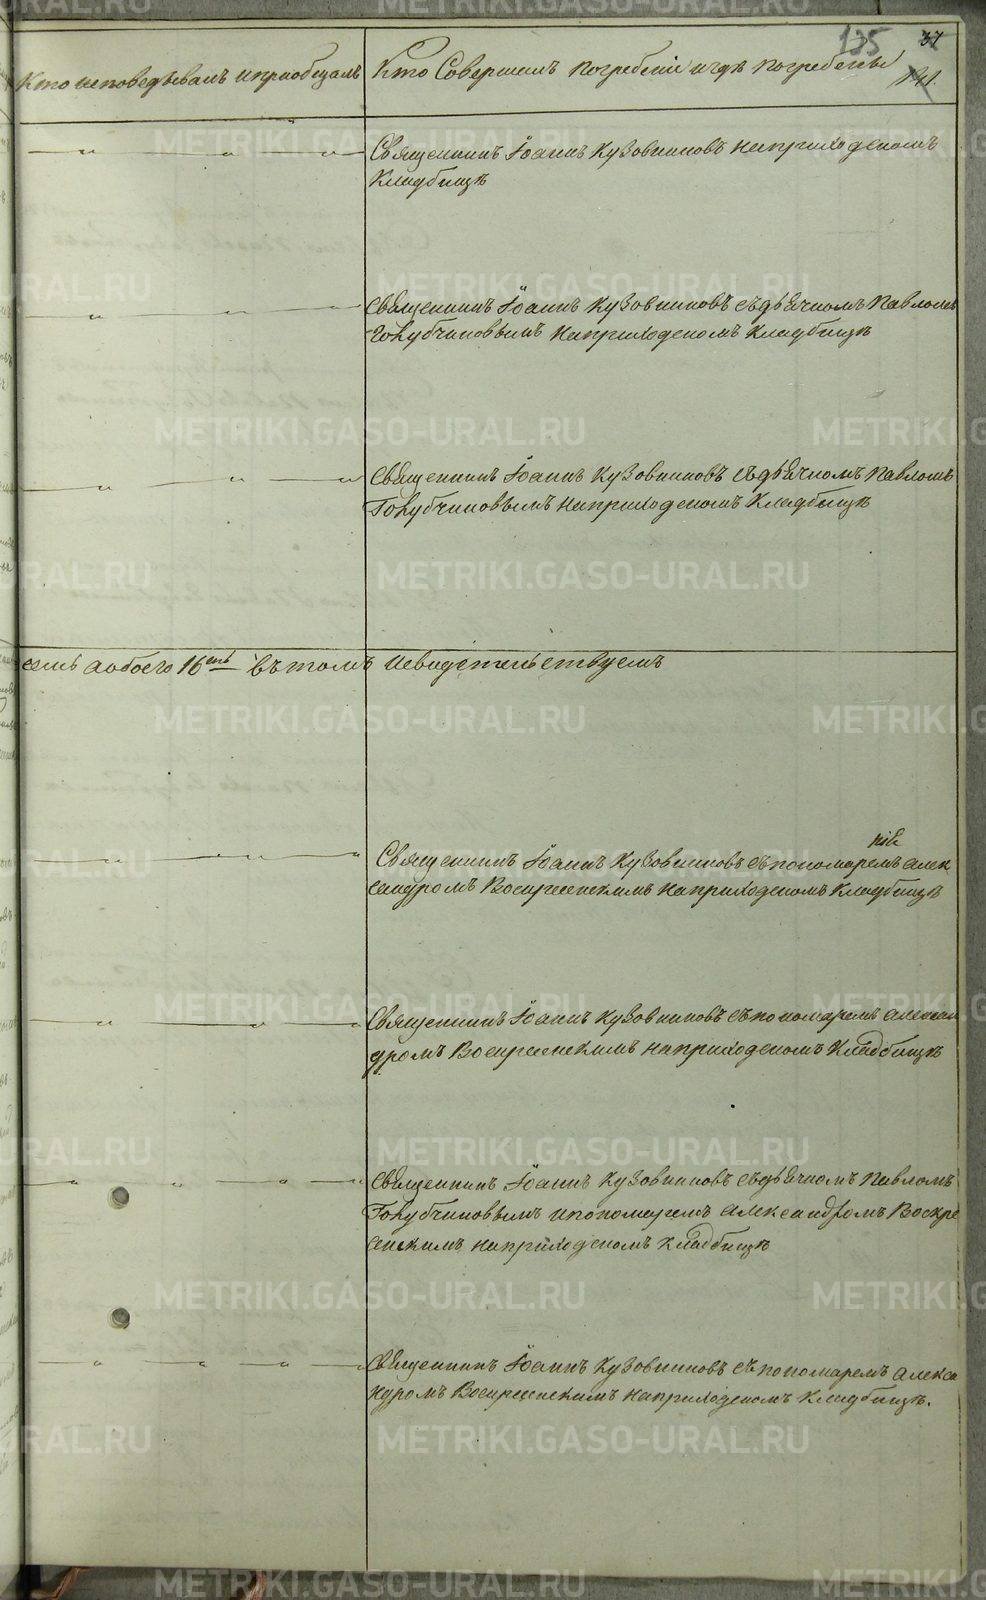 135 37
Кто исповедывалъ и приобщалъ
Кто Совершалъ погребенiе и гдѣ погребены
Священникъ Iоаннъ Кузовниковъ на приходскомъ
Кладбищѣ
Священникъ Iоаннъ Кузовниковъ съ дьячкомъ Павломъ
Голубчиковымъ на приходскомъ Кладбищѣ
Священникъ Iоаннъ Кузовниковъ съ дьячкомъ Павломъ
Голубчиковымъ на приходскомъ Кладбищѣ
семь а обоего 16еть въ томъ и свидетельствуемъ
Священникъ Iоаннъ Кузовниковъ съ пономаремъ Алек
сандромъ Воскресенскимъ на приходскомъ Кладбищѣ
Священникъ Iоаннъ Кузовниковъ съ пономаремъ Алексан
дромъ Воскресенскимъ на приходскомъ Кладбищѣ
Священникъ Iоаннъ Кузовниковъ съ дьячкомъ Павломъ
Голубчиковымъ и пономаремъ Александромъ Воскре
сенскимъ на приходскомъ Кладбищѣ
Священникъ Iоаннъ Кузовниковъ съ пономаремъ Алекса
ндромъ Воскресенскимъ на приходскомъ Кладбищѣ.
METRIKI.GASO-URAL.RU